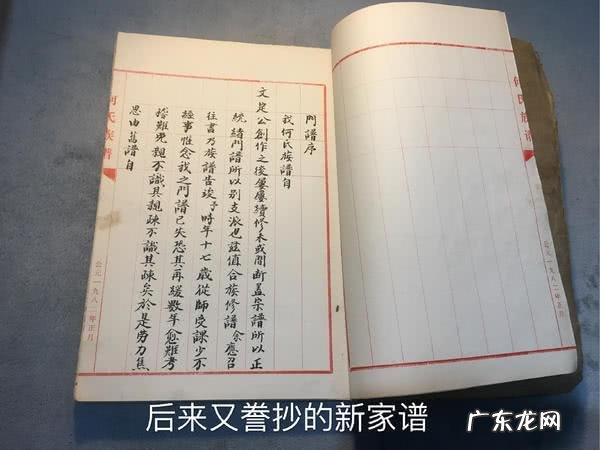 門譜序
我何氏族譜自
文定公創作之後屢屢續修未或間斷蓋宗譜所以正
統緒門譜所以別支派也茲值合族修譜余應召
往書乃族譜告竣予時年十七歲從師受課少不
經事惟念我之門譜已失恐其再緩數年愈難考
稽難免親不識其親疎不識其疎矣於是勞力焦
思由舊譜自
何氏族譜
公元一九八二年正月
何氏族譜
公元一九八二年正月
后来又誊抄的新家谱
广东龙网